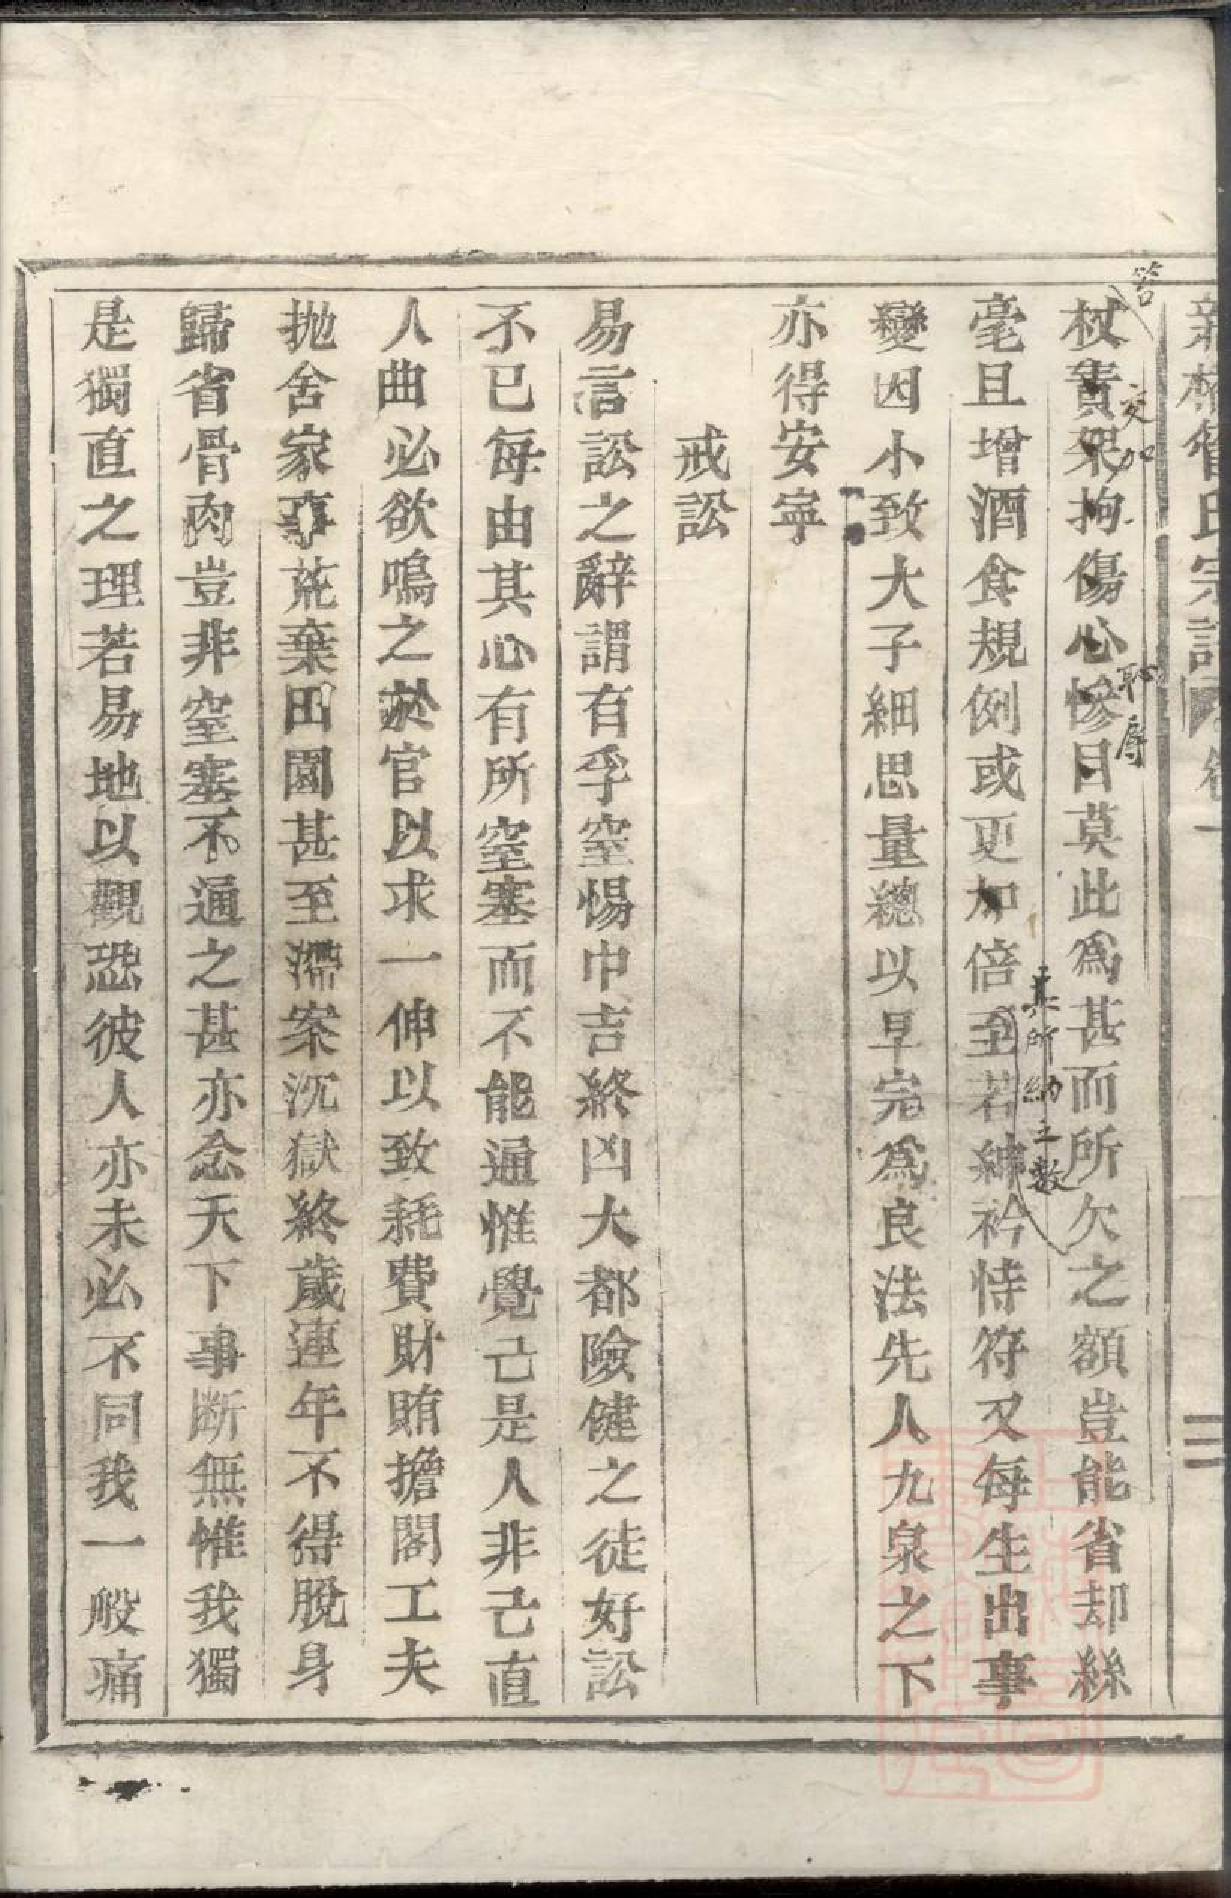 杖責枷拘傷心慘目莫此為甚而所欠之額豈能省却絲
笞
交加
恥辱
毫且增酒食規例或更加倍至若紳衿恃符又每生出事
其所納之數
變因小致大子細思量總以早完為良法先人九泉之下
亦得安寧
戒訟
易言訟之辭謂有孚窒惕中吉終凶大都險健之徒好訟
不已每由其心有所窒塞而不能通惟覺己是人非己直
人曲必欲鳴之於官以求一伸以致耗費財賄擔閣工夫
拋舍家事荒棄田園甚至滯案沉獄終歲連年不得脫身
歸省骨肉豈非窒塞不通之甚亦念天下事斷無惟我獨
是獨直之理若易地以觀恐彼人亦未必不同我一般痛